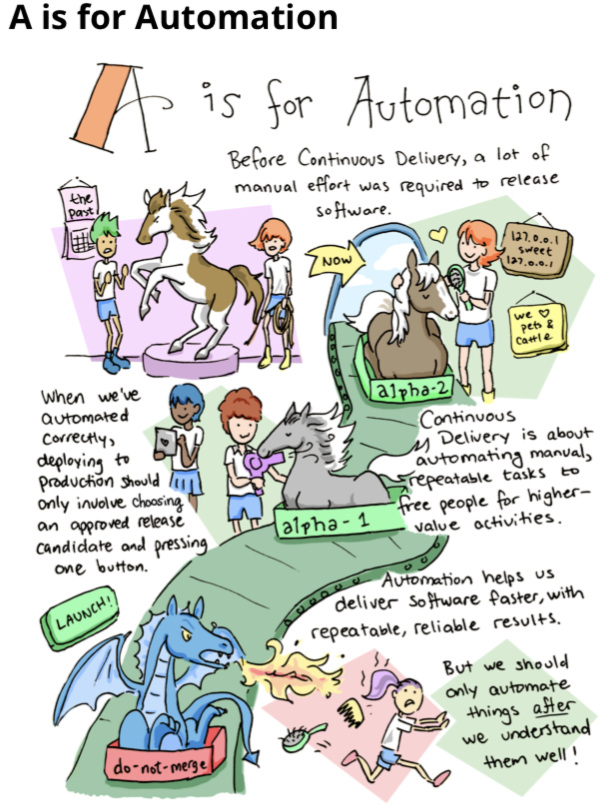 A is for Automation
A is for Automation
Before Continuous Delivery, a lot of
manual effort was required to release
software.
the
past
NOW
127.0.0.1
sweet
127.0.0.1
we ♡
pets &
cattle
alpha-2
When we've
automated
correctly,
deploying to
production should
only involve choosing
an approved release
candidate and pressing
one button.
Continuous
Delivery is about
automating manual,
repeatable tasks to
free people for higher-
value activities.
alpha-1
Automation helps us
deliver software faster, with
repeatable, reliable results.
LAUNCH!
But we should
only automate
things after
we understand
them well!
do-not-merge